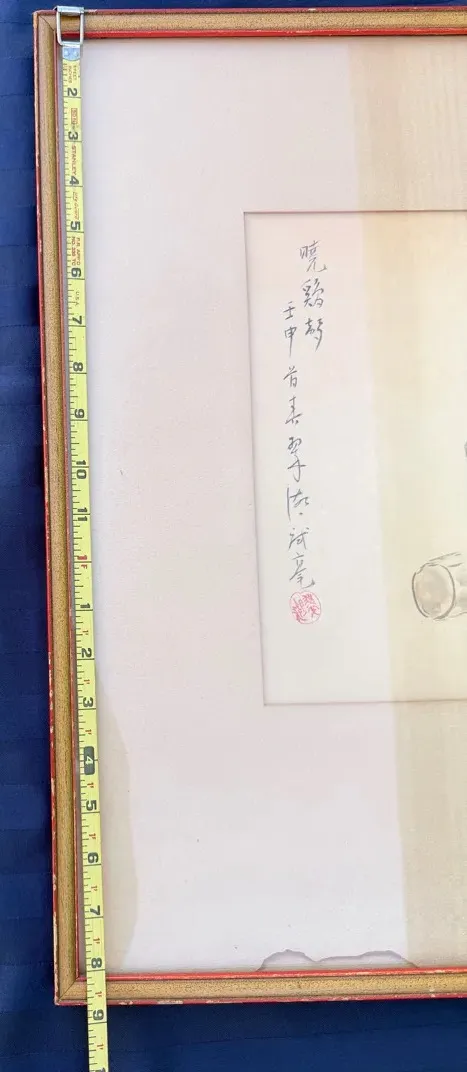 曉鷄
壬申首春翠試毫
2
3
STANLEY
4
5
6
U.S.A.
7
8
9
10
11
1F
1
2
3
4
5
6
7
8
9